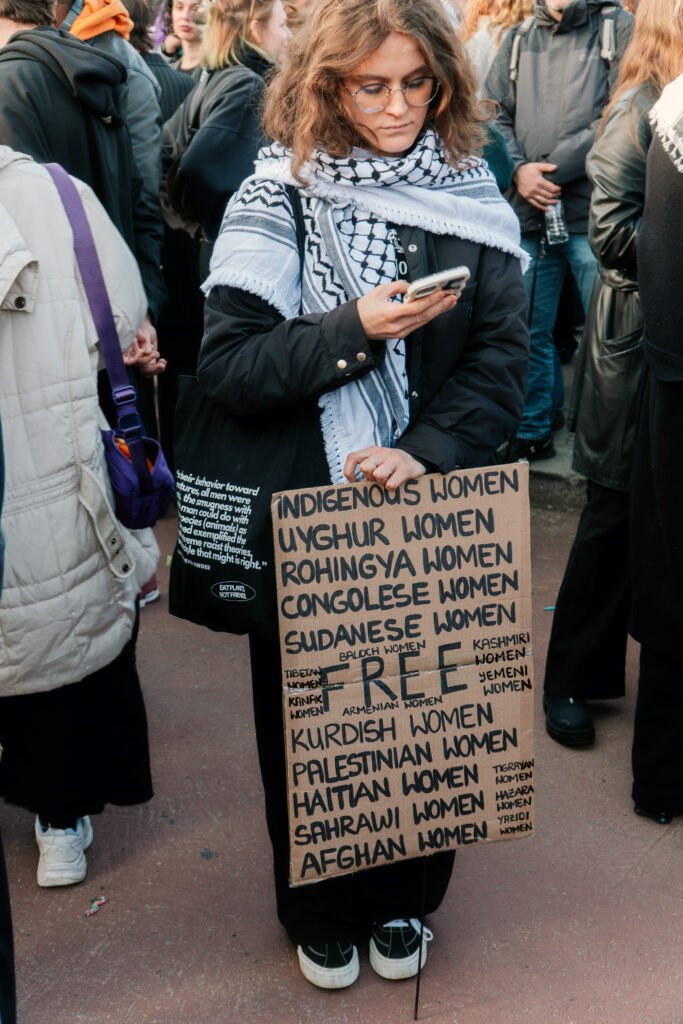 their behavior toward
all men were
the smugness with
man could do with
species (animals) as
exemplified the
racist theories,
that might is right."
EAT PLANTS,
NOT FRIENDS
INDIGENOUS WOMEN
UYGHUR WOMEN
ROHINGYA WOMEN
CONGOLESE WOMEN
SUDANESE WOMEN
BALOCH WOMEN
KASHMIRI
WOMEN
TIBETAN
WOMEN
FREE
YEMENI
WOMEN
KANAK
WOMEN
ARMENIAN WOMEN
KURDISH WOMEN
PALESTINIAN WOMEN
HAITIAN WOMEN
TIGRAYAN
WOMEN
SAHRAWI WOMEN
HAZARA
WOMEN
AFGHAN WOMEN
YAZIDI
WOMEN